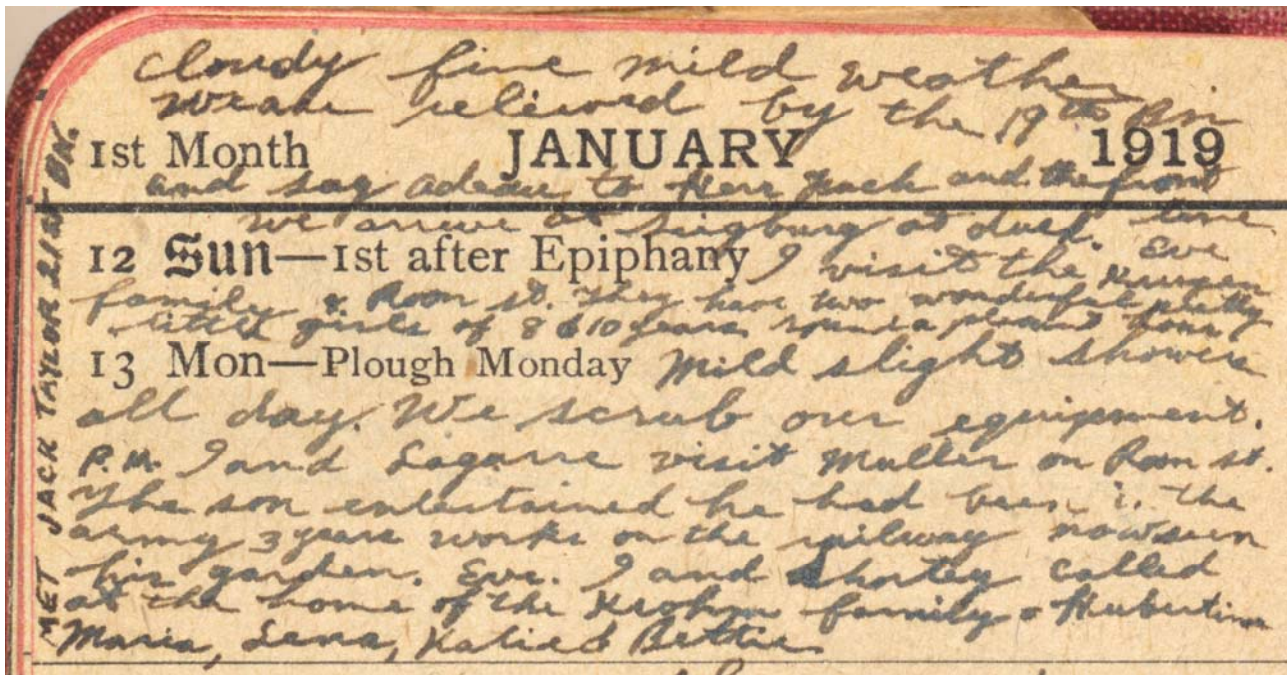 cloudy fine mild weather
We are relieved by the 19th Bn
1st Month JANUARY 1919
and say adeau to Herr and the front
line
we arrive at Siegburg at dusk. Eve
12 Sun—1st after Epiphany I visit the
family Roon st. They have two wonderful pretty
little girls of 8 & 10 years spend a pleasant hour
13 Mon—Plough Monday Mild slight showers
all day. We scrub our equipment.
P.M. I and Lagarre visit Muller on Roon st.
The son entertained he had been in the
army 3 years works on the railway now
his garden. Eve. I and Shortey called
at the home of the Krohm family Hubertina
Maria, Lena, Katie & Bettie
MET JACK TAYLOR 21ST BN.